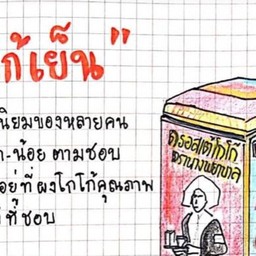 ก้เย็น"
นิยมของหลายคน
-น้อย ตามชอบ
อยู่ที่ ผงโกโก้คุณภาพ
ที่ชอบ
ดรอสเต้โกโก้
ตรานางพยาบาล